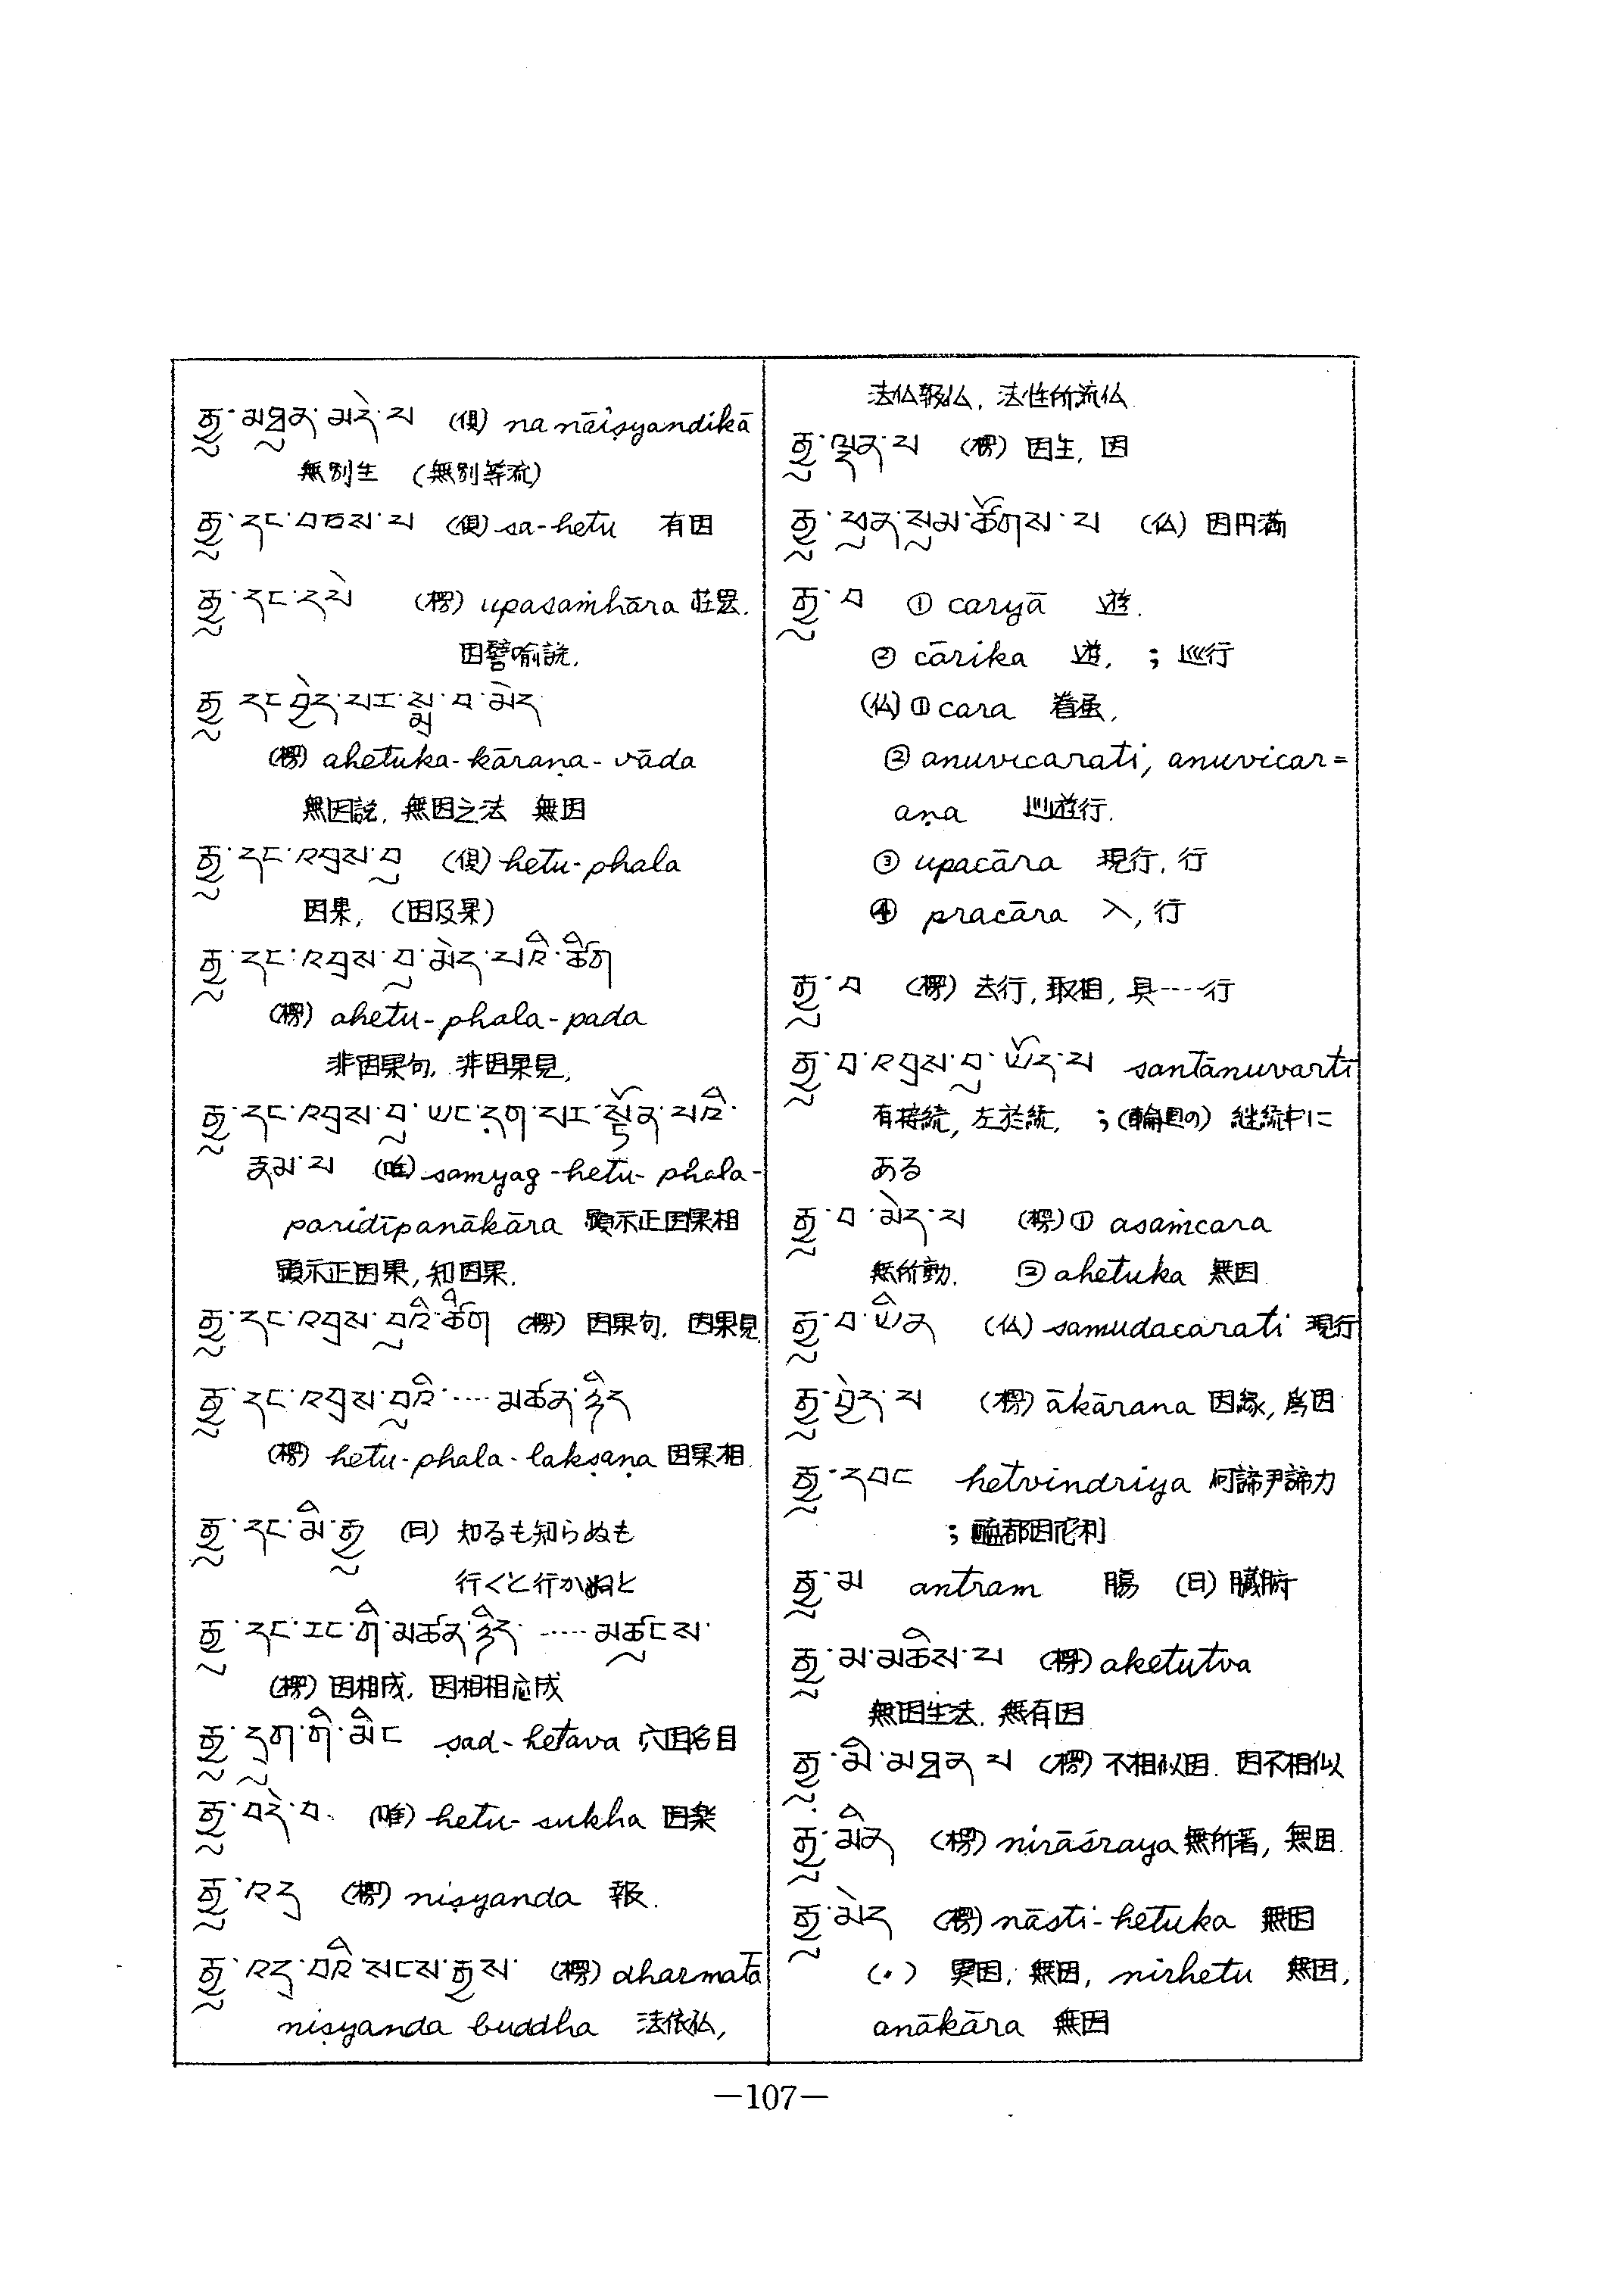 རྒྱུ་མཐུན་མེད་པ (倶) na nāiṣyandikā
無別生 (無別等流)
རྒྱུ་དང་བཅས་པ (倶) sa-hetu 有因
རྒྱུ་དང་དཔེ (楞) upasaṁhāra 荘厳.
因譬喩説,
རྒྱུ་དང་བྱེད་པར་སྨྲ་བ་མེད
(楞) ahetuka-kāraṇa-vāda
無因説, 無因之法 無因
རྒྱུ་དང་འབྲས་བུ (倶) hetu-phala
因果, (因及果)
རྒྱུ་དང་འབྲས་བུ་མེད་པའི་ཚིག
(楞) ahetu-phala-pada
非因果句, 非因果見,
རྒྱུ་དང་འབྲས་བུ་ཡང་དག་པར་སྟོན་པའི་
རྣམ་པ (唯) samyag-hetu-phala-
paridīpanākāra 顕示正因果相
顕示正因果, 知因果.
རྒྱུ་དང་འབྲས་བུའི་ཚིག (楞) 因果句, 因果見
རྒྱུ་དང་འབྲས་བུའི་····མཚན་ཉིད
(楞) hetu-phala-lakṣaṇa 因果相.
རྒྱུ་དང་མི་རྒྱུ (日) 知るも知らぬも
行くと行かぬと
རྒྱུ་དང་རང་གི་མཚན་ཉིད་·····མཚུངས་
(楞) 因相成, 因相相応成
རྒྱུ་དྲུག་གི་མིང ṣad-hetava 六因名目
རྒྱུ་བདེ་བ. (唯) hetu-sukha 因楽
རྒྱུ་འདྲ (楞) niṣyanda 報.
རྒྱུ་འདྲ་བའི་སངས་རྒྱས་ (楞) dharmatā
niṣyanda buddha 法依仏,
—107—
法仏報仏, 法性所流仏.
རྒྱུ་ལྡན་པ (楞) 因生, 因
རྒྱུ་ཕུན་སུམ་ཚོགས་པ (仏) 因円満
རྒྱུ་བ ① caryā 遊.
② cārika 遊, ; 巡行
(仏) ① cara 着
② anuvicarati, anuvicar=
aṇa 巡遊行.
③ upacāra 現行, 行
④ pracāra 入, 行
རྒྱུ་བ (楞) 去行, 取相, 具····行
རྒྱུ་བ་འབྲས་བུ་ཡོད་པ santānuvarti
有接続, 左於続, ; (輪廻の) 継続中に
ある
རྒྱུ་བ་མེད་པ (楞) ① asaṁcara
無所動. ② ahetuka 無因
རྒྱུ་བ་ཡིན (仏) samudacarati 現行
རྒྱུ་བྱེད་པ (楞) ākārana 因縁, 為因
རྒྱུ་དབང hetvindriya 何諦尹諦力
; 醯都因陀利
རྒྱུ་མ antram 腸 (日) 臓腑
རྒྱུ་མ་མཆིས་པ (楞) aketutva
無因生法. 無有因
རྒྱུ་མི་མཐུན་པ (楞) 不相似因. 因不相似
རྒྱུ་མིན (楞) nirāśraya 無所著, 無因.
རྒྱུ་མེད (楞) nāsti-hetuka 無因
(・) 異因, 無因, nirhetu 無因,
anākāra 無因